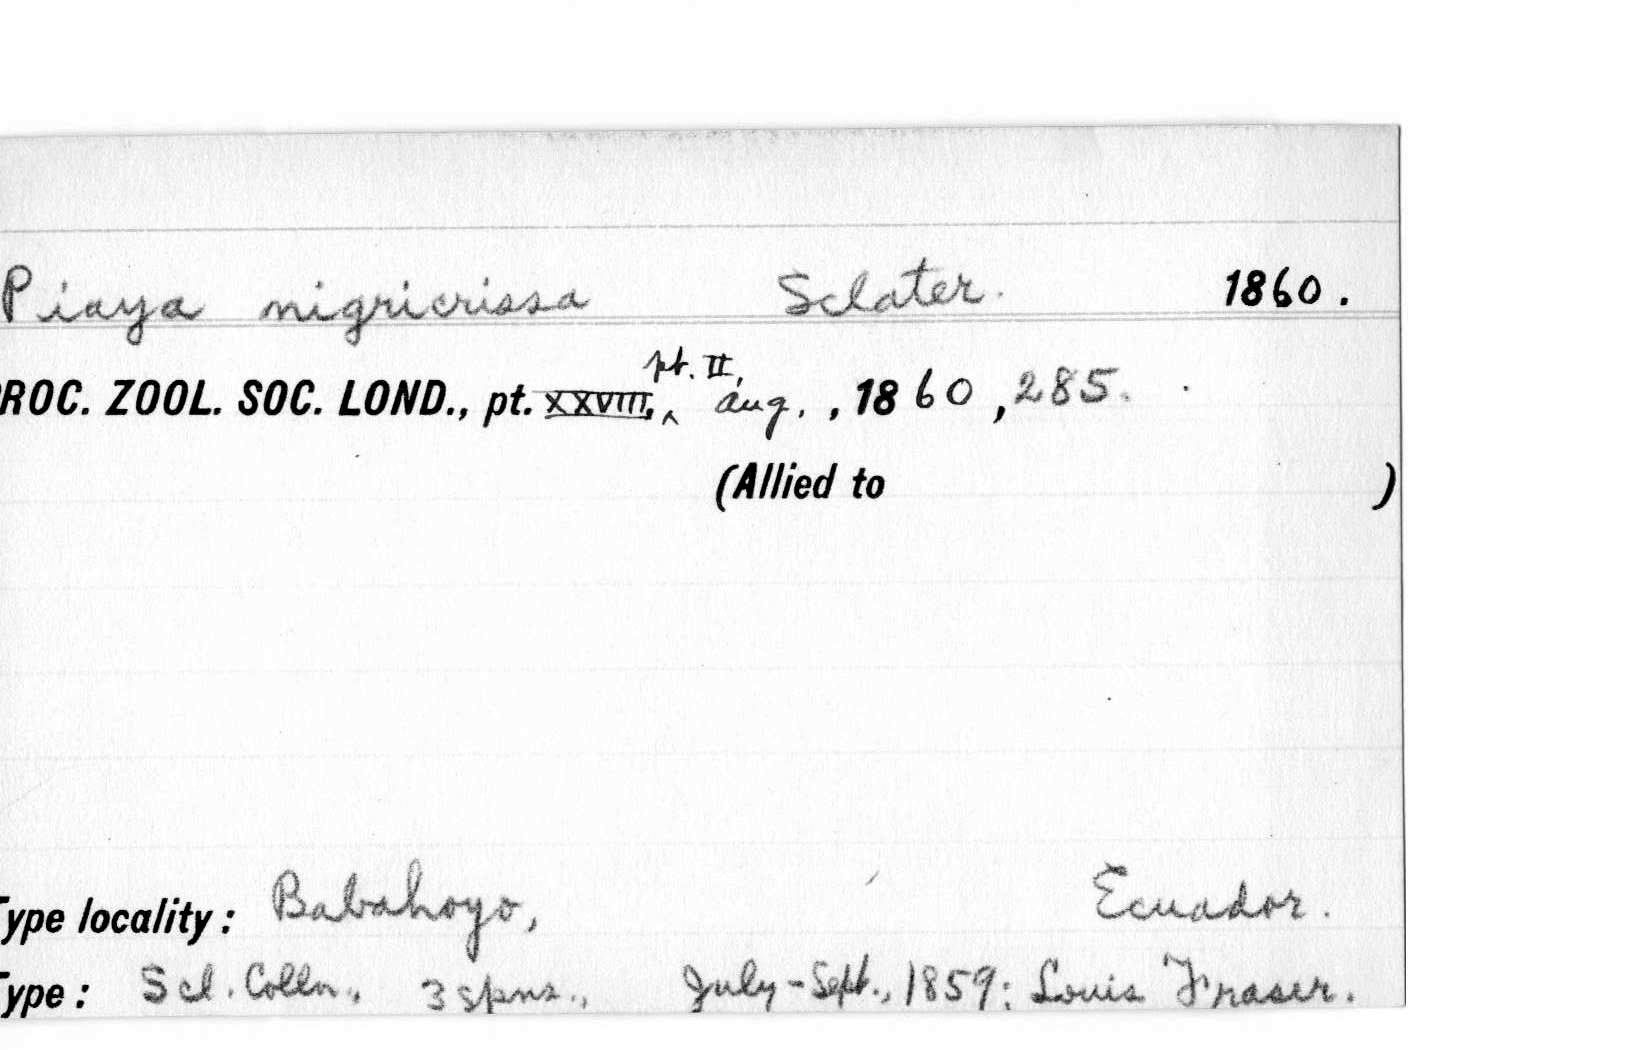 Piaya nigricrissa Sclater. 1860.
pt. II,
ROC. ZOOL. SOC. LOND., pt. XXVIII, ^ Aug., 1860, 285.
(Allied to )
Type locality: Babahoyo, Ecuador.
Type: Scl. Colln., 3 spns., July-Sept., 1859: Louis Fraser.